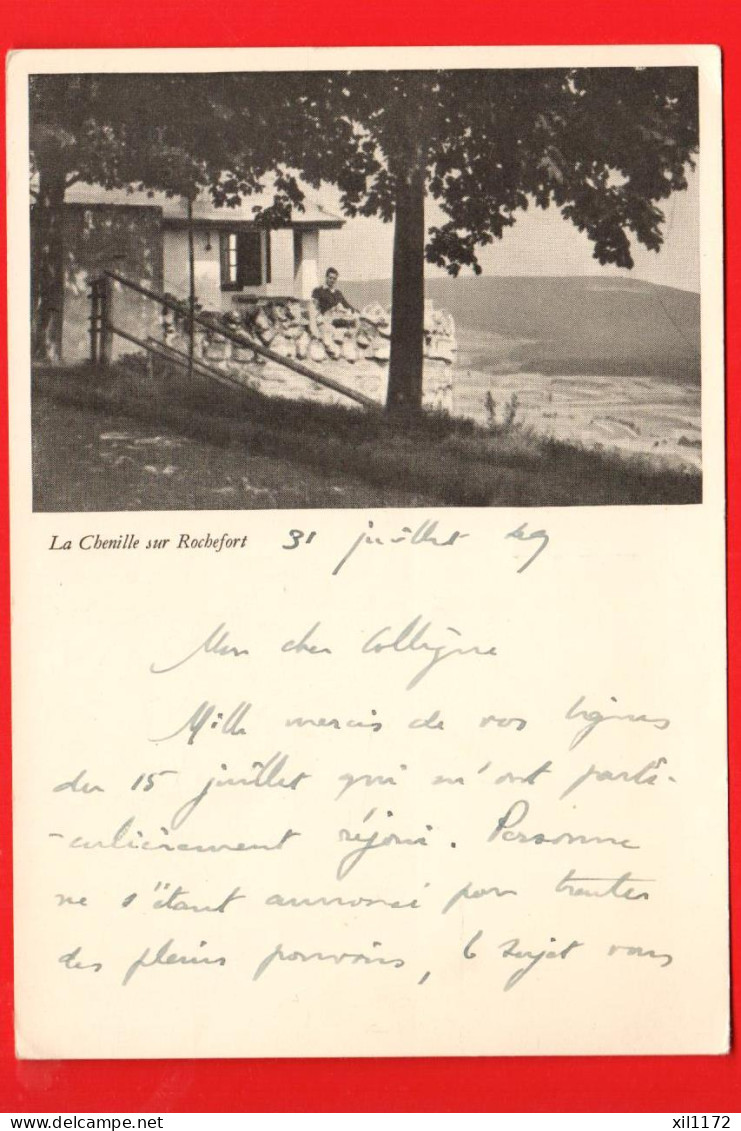 La Chenille sur Rochefort 31 juillet 49
Mon cher Collègue
Mille mercis de vos lignes
du 15 juillet qui m'ont parti-
-culièrement réjoui. Personne
ne s'étant annoncé pour traiter
des pleins pouvoirs, le sujet vous
xil1172